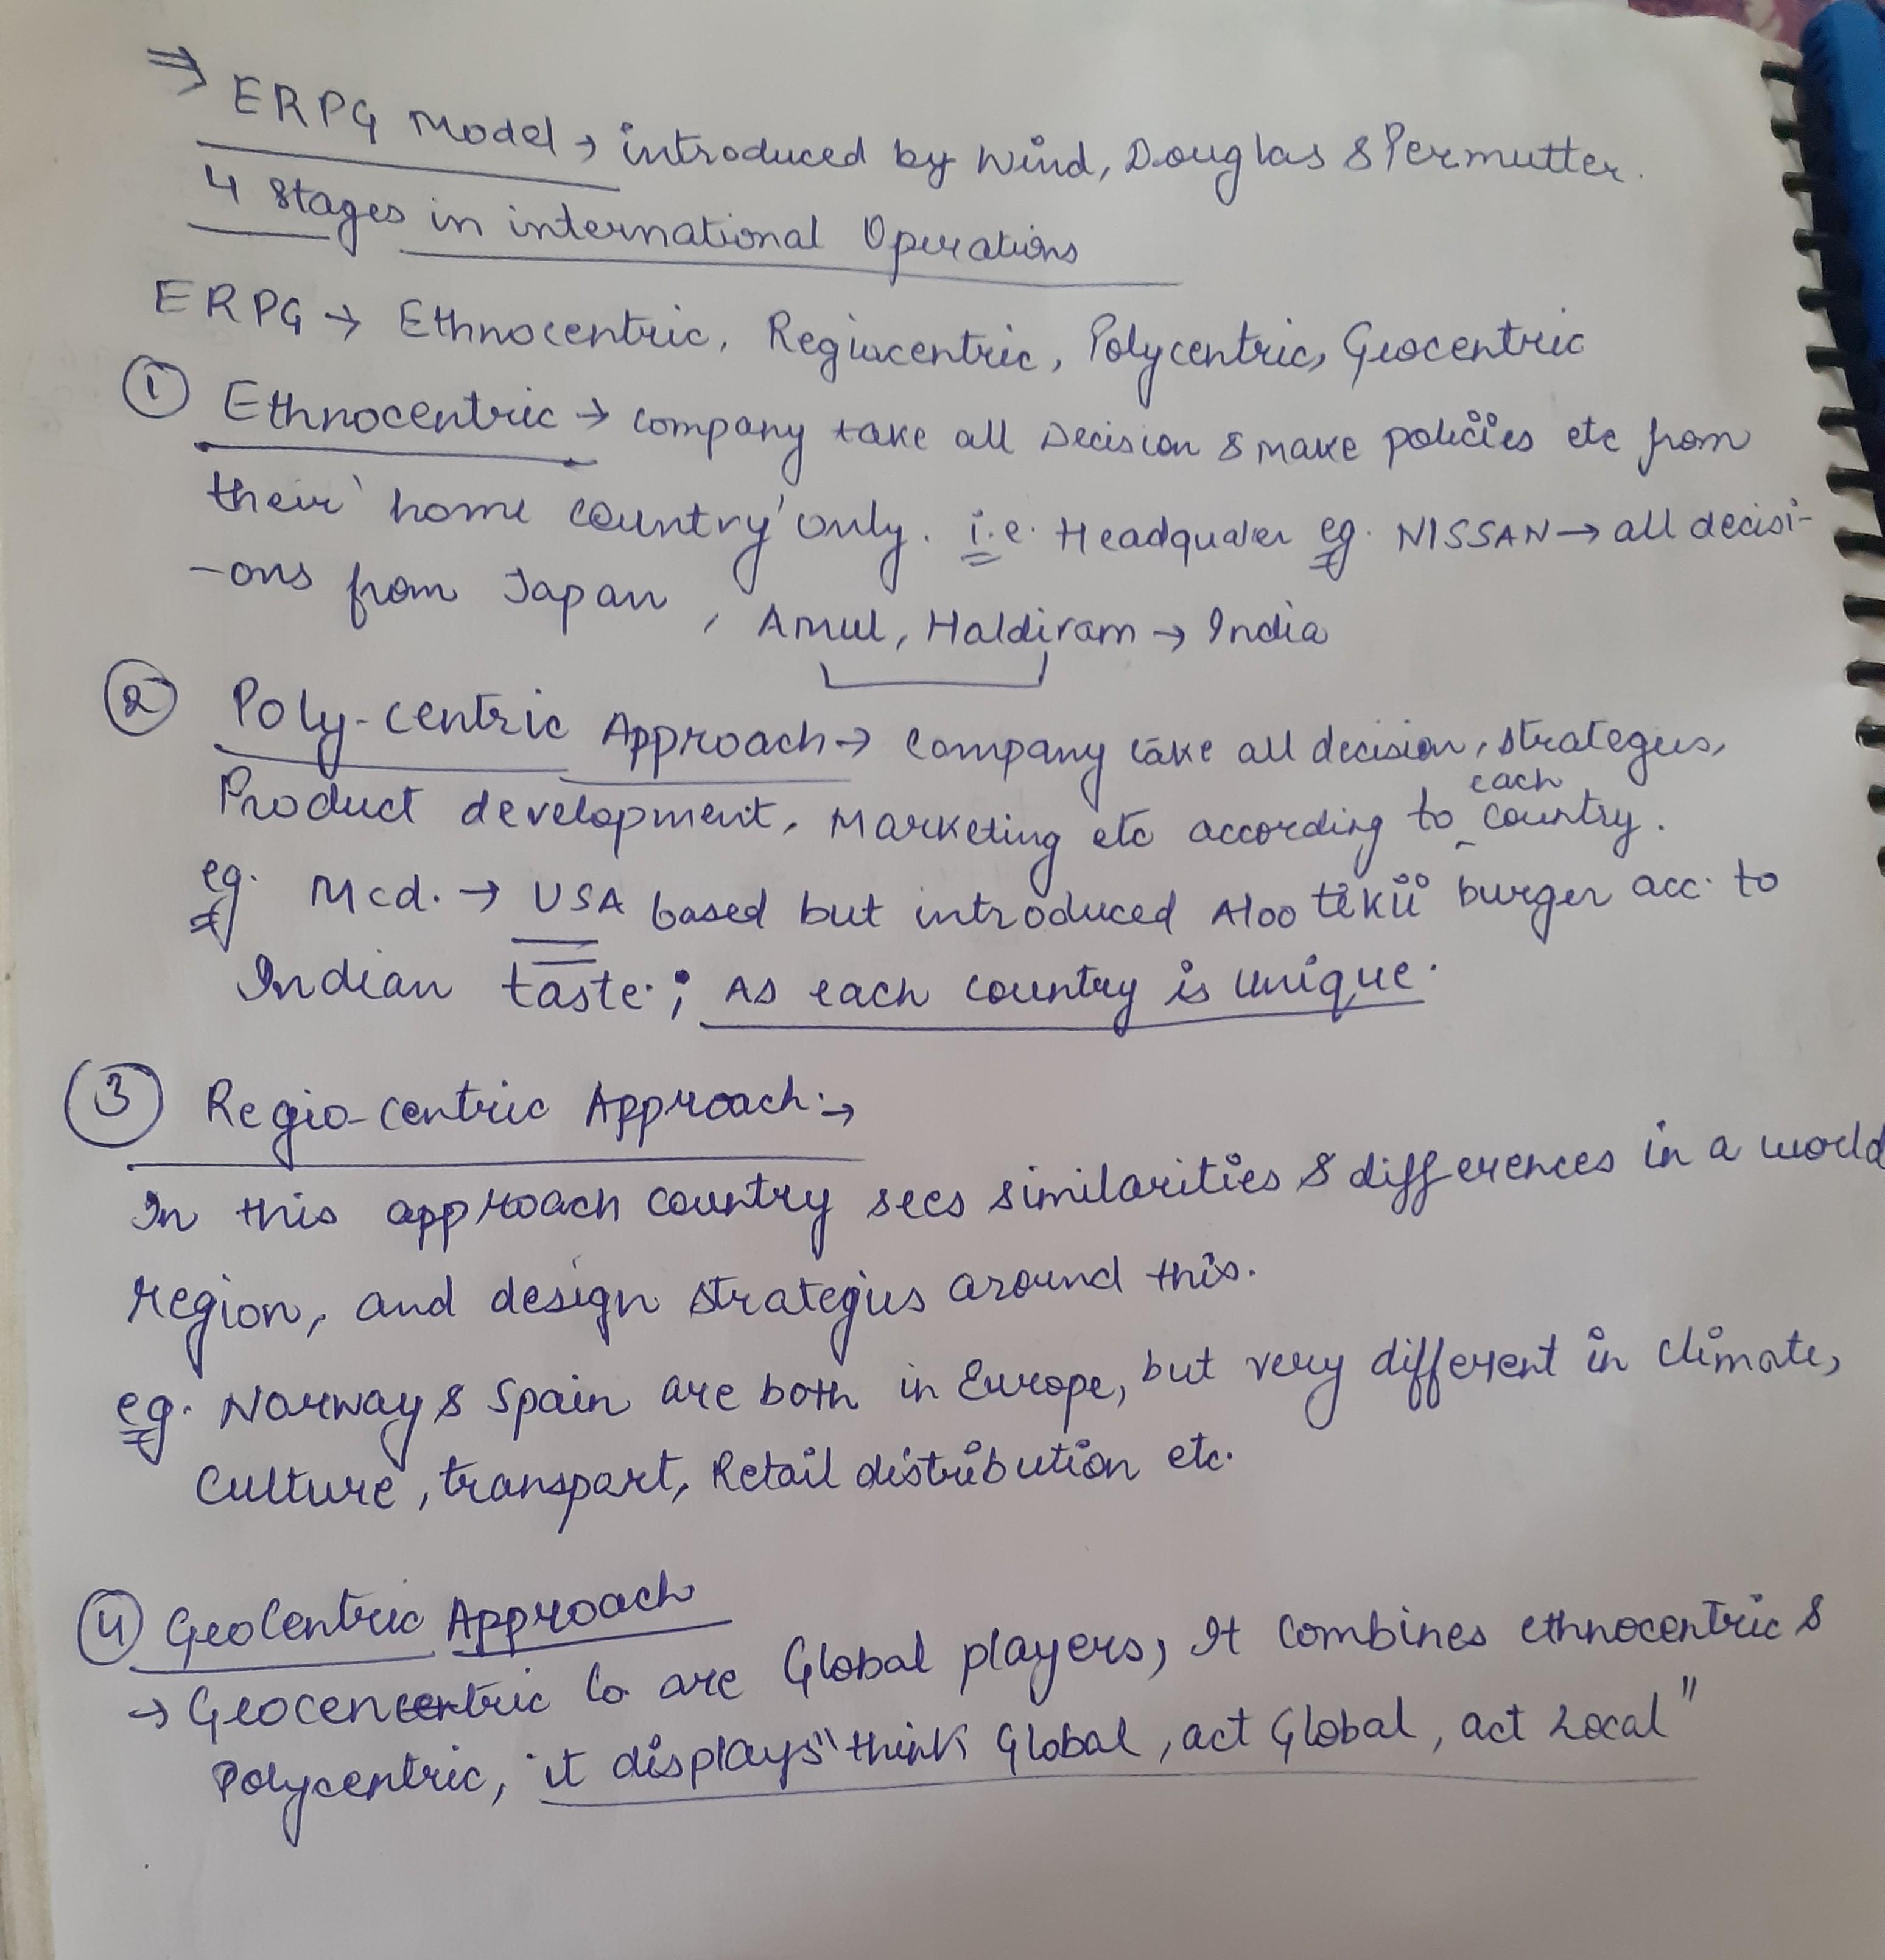 ⇒ ERPG Model → introduced by Wind, Douglas & Permutter.
4 Stages in international Operations
ERPG → Ethnocentric, Regiocentric, Polycentric, Geocentric
① Ethnocentric → Company take all Decision & make policies etc from
their 'home country' only. i.e. Headquater eg. NISSAN → all decisi-
-ons from Japan, Amul, Haldiram → India
② Poly-centric Approach → Company take all decision, strategies,
each
Product development, Marketing etc according to country.
eg. Mcd. → USA based but introduced Aloo tikii burger acc. to
Indian taste.; As each country is unique.
③ Regio-centric Approach:→
In this approach country sees similarities & differences in a world
region, and design strategies around this.
eg. Norway & Spain are both in Europe, but very different in climate,
Culture, transport, Retail distribution etc.
④ GeoCentric Approach
→ Geocencentric Co are Global players, It Combines ethnocentric &
Polycentric, it displays "think Global, act Global, act Local"